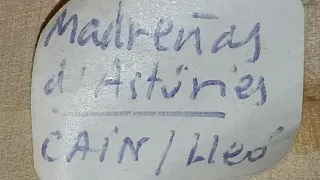 Madreñas
d'Astúries
CAIN/Lleó